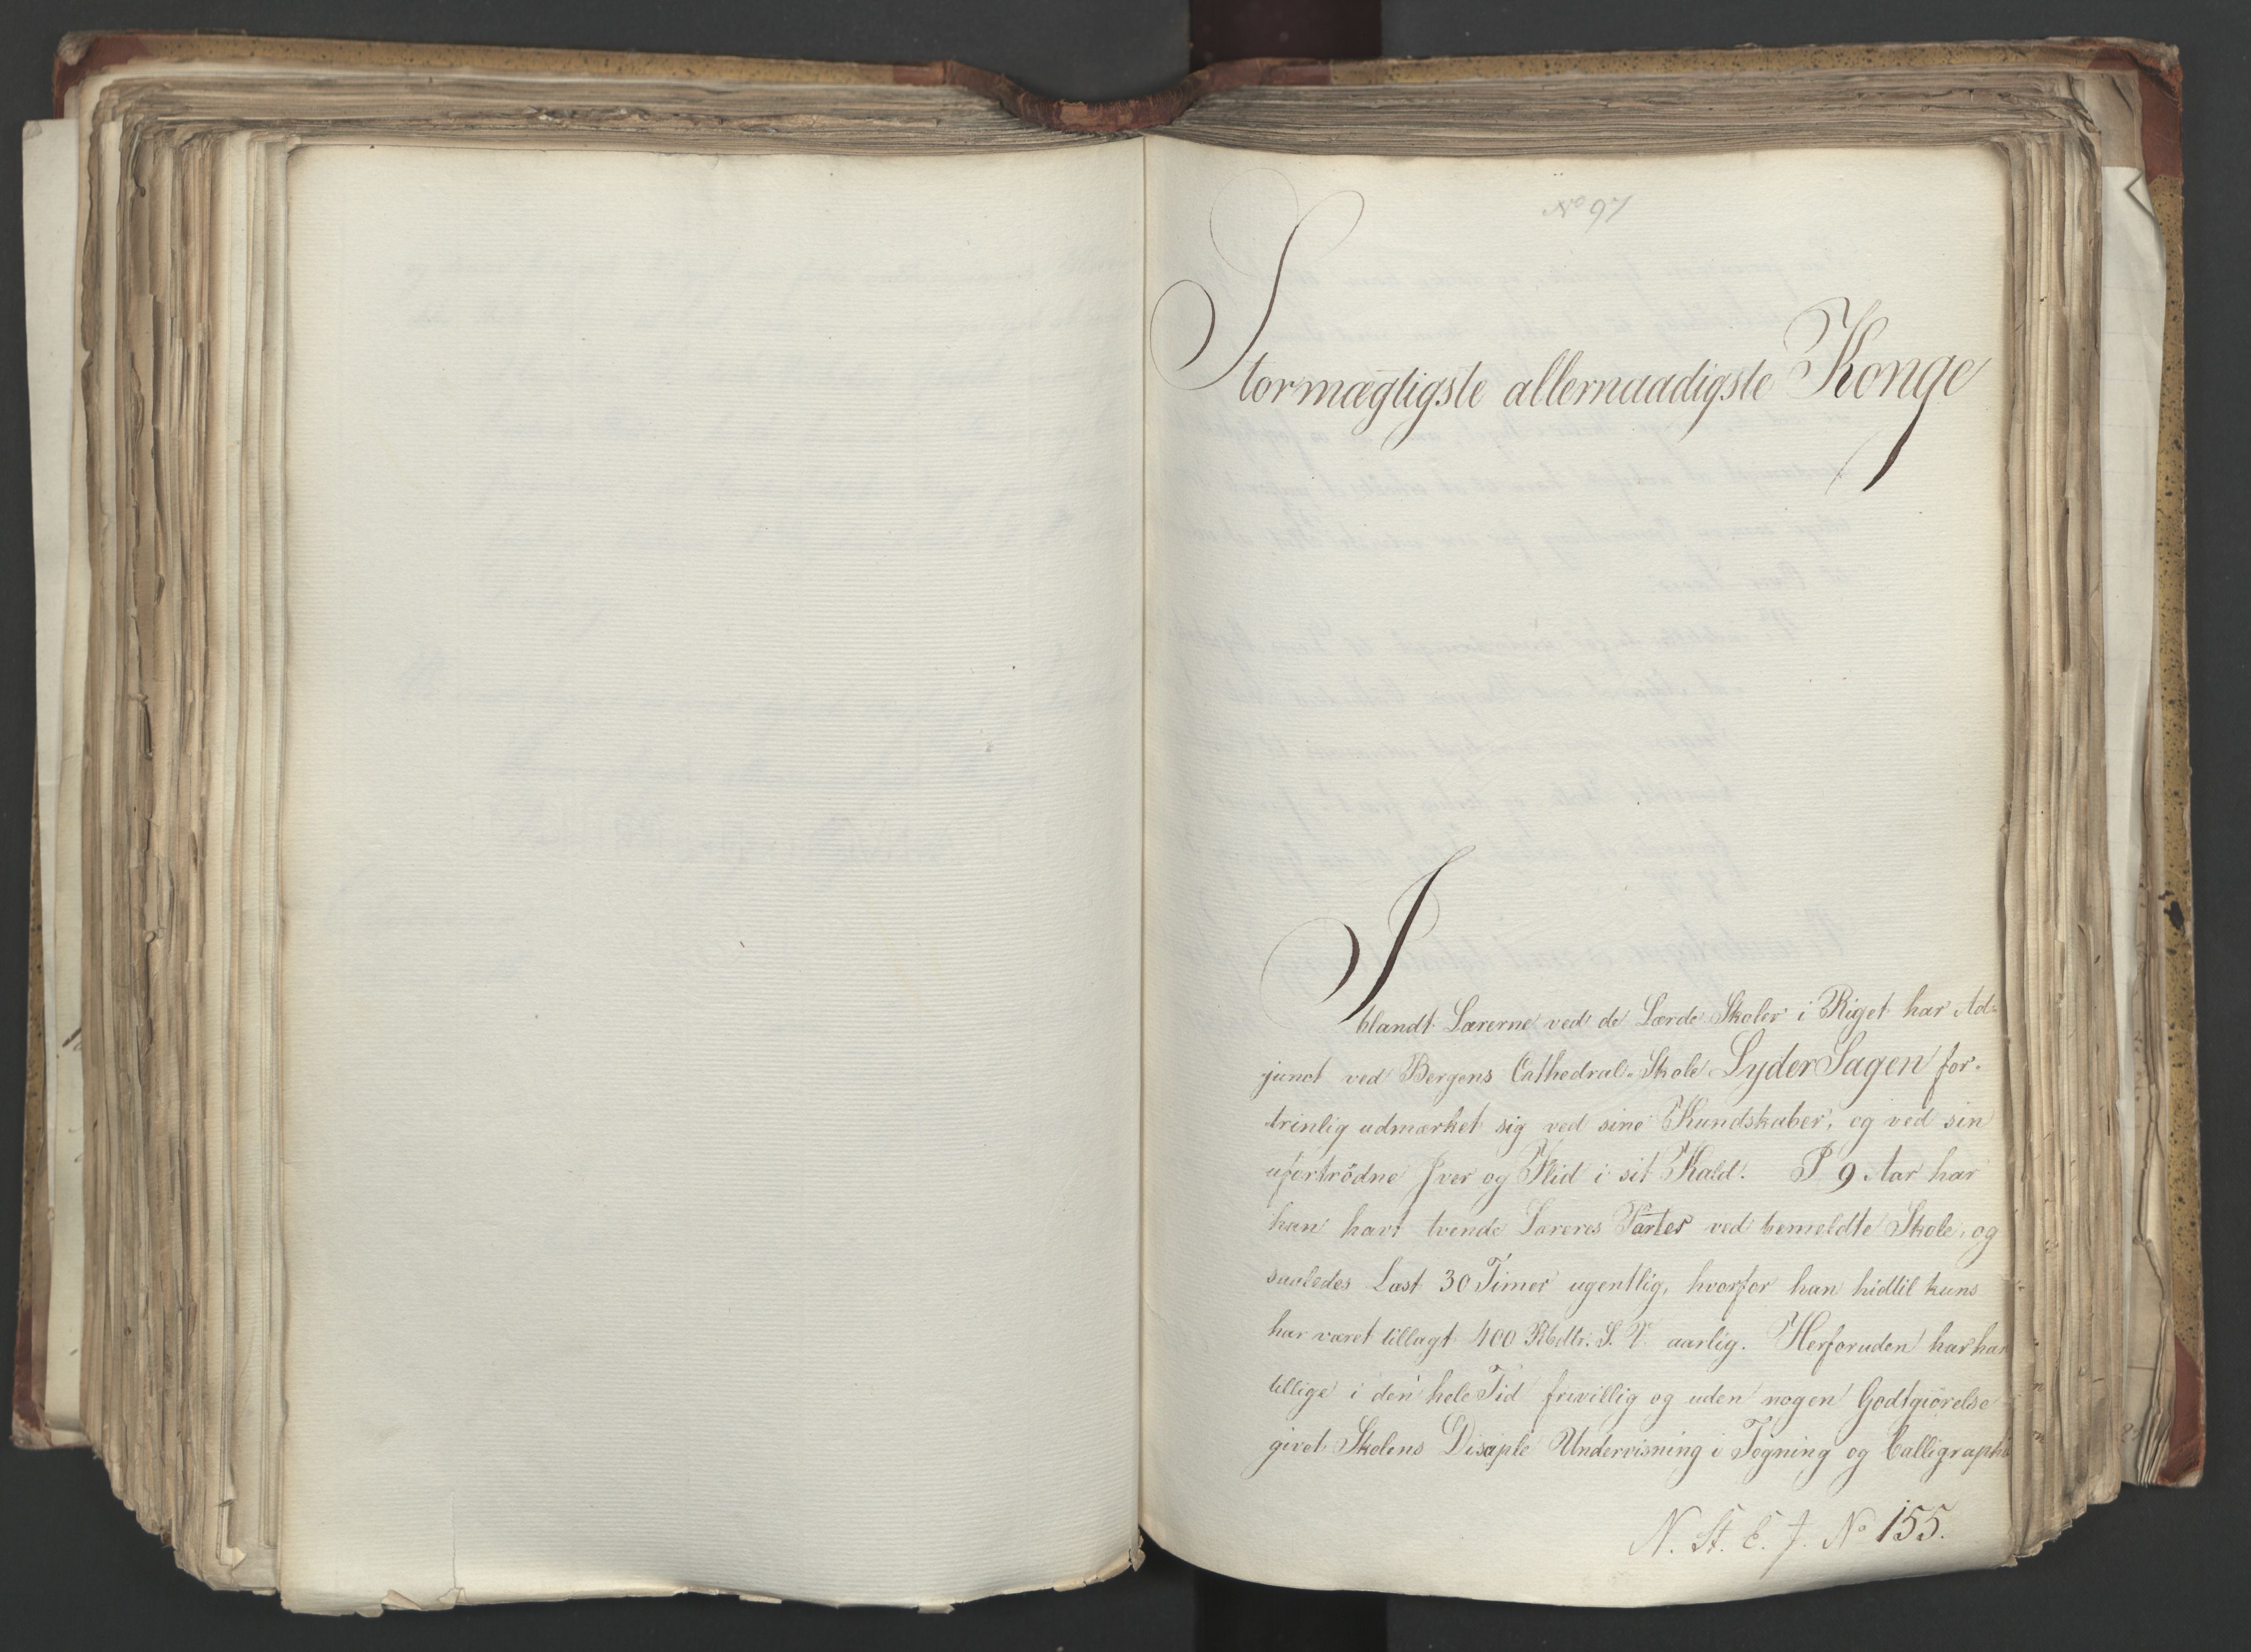 No 97
Stormægtigste allernaadigste Konge
Iblandt Lærerne ved de Lærde Skoler i Riget har Ad-
junct ved Bergens Cathedral-Skole Lyder Sagen for-
trinlig udmærket sig ved sine Kundskaber, og ved sin
ufortrødne Iver og Flid i sit Kald. I 9 Aar har
han havt tvende Læreres Poster ved bemeldte Skole, og
saaledes Læst 30 Timer ugentlig, hvorfor han hidtil kuns
har været tillagt 400 Rbdlr. S. V. aarlig. Herforuden har han
tillige i den hele Tid frivillig og uden nogen Godtgiørelse
givet Skolens Disciple Undervisning i Tegning og Calligraphie
N. St. E. J. No 155.